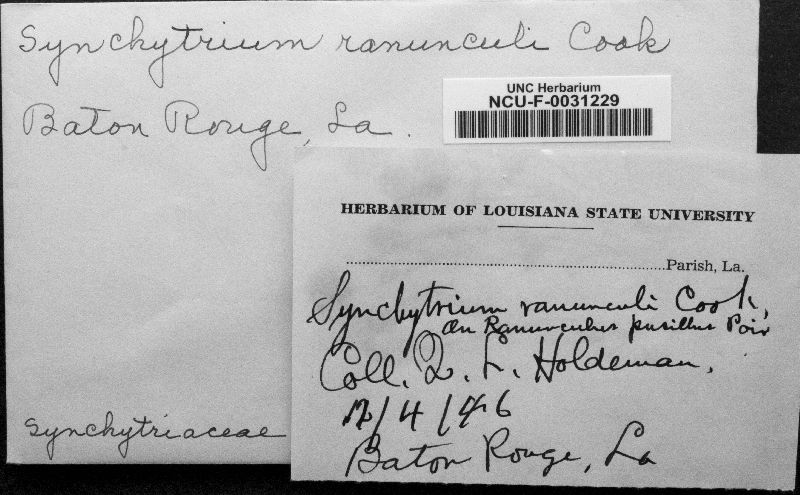 Synchytrium ranunculi Cook
Baton Rouge, La.
UNC Herbarium
NCU-F-0031229
HERBARIUM OF LOUISIANA STATE UNIVERSITY
Parish, La.
Synchytrium ranunculi Cook,
on Ranunculus pusillus Poir
Coll. Q. L. Holdeman,
2/4/46
Baton Rouge, La
Synchytriaceae